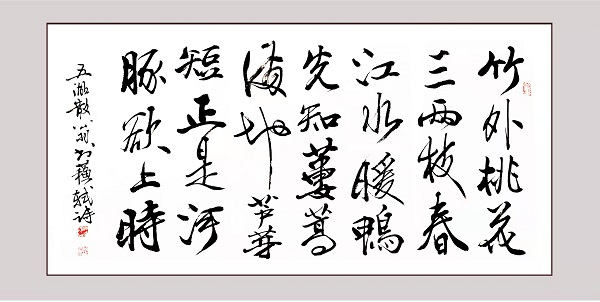 竹外桃花
三两枝春
江水暖鴨
先知蔞蒿
满地芦芽
短正是河
豚欲上時
五 散翁书蘇軾诗